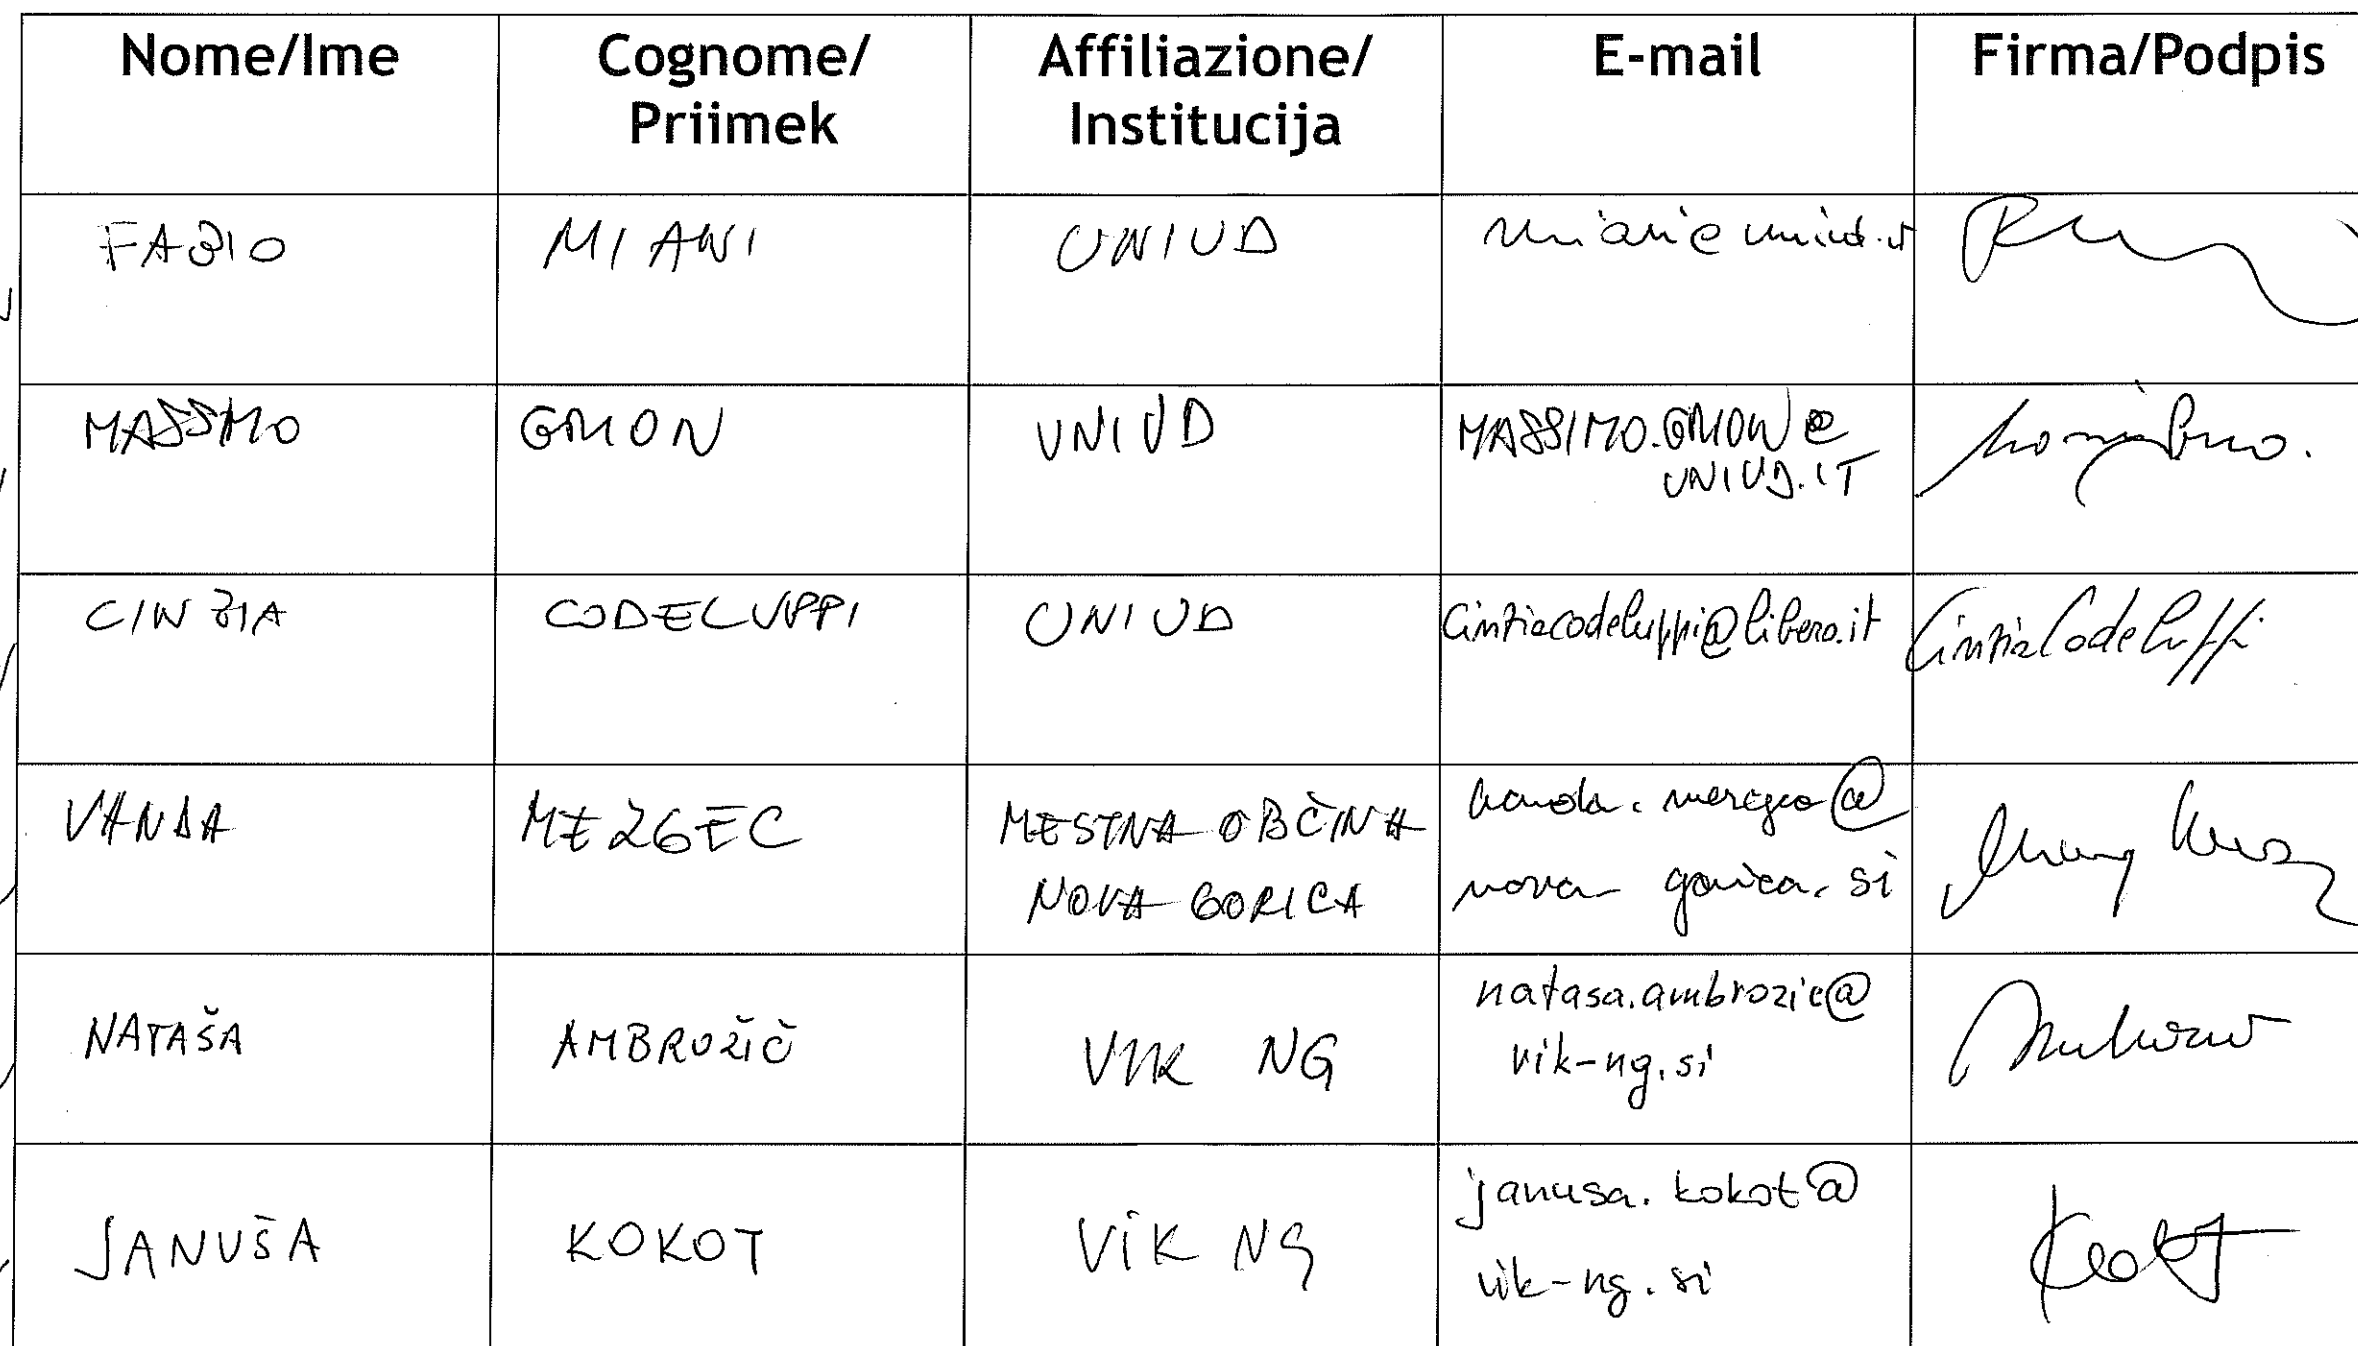 Nome/Ime
Cognome/
Priimek
Affiliazione/
Institucija
E-mail
Firma/Podpis
FABIO
MIANI
UNIUD
miani@uniud.it
MASSIMO
GMON
UNIUD
MASSIMO.GMON@
UNIUD.IT
CINZIA
CODELUPPI
UNIUD
cinziacodeluppi@libero.it
Cinzia Codeluppi
VANDA
MEZGEC
MESTNA OBČINA
NOVA GORICA
nova-gorica.si
NATAŠA
AMBROŽIČ
VIK NG
natasa.ambrozic@
vik-ng.si
JANUŠA
KOKOT
VIK NG
janusa.kokot@
vik-ng.si